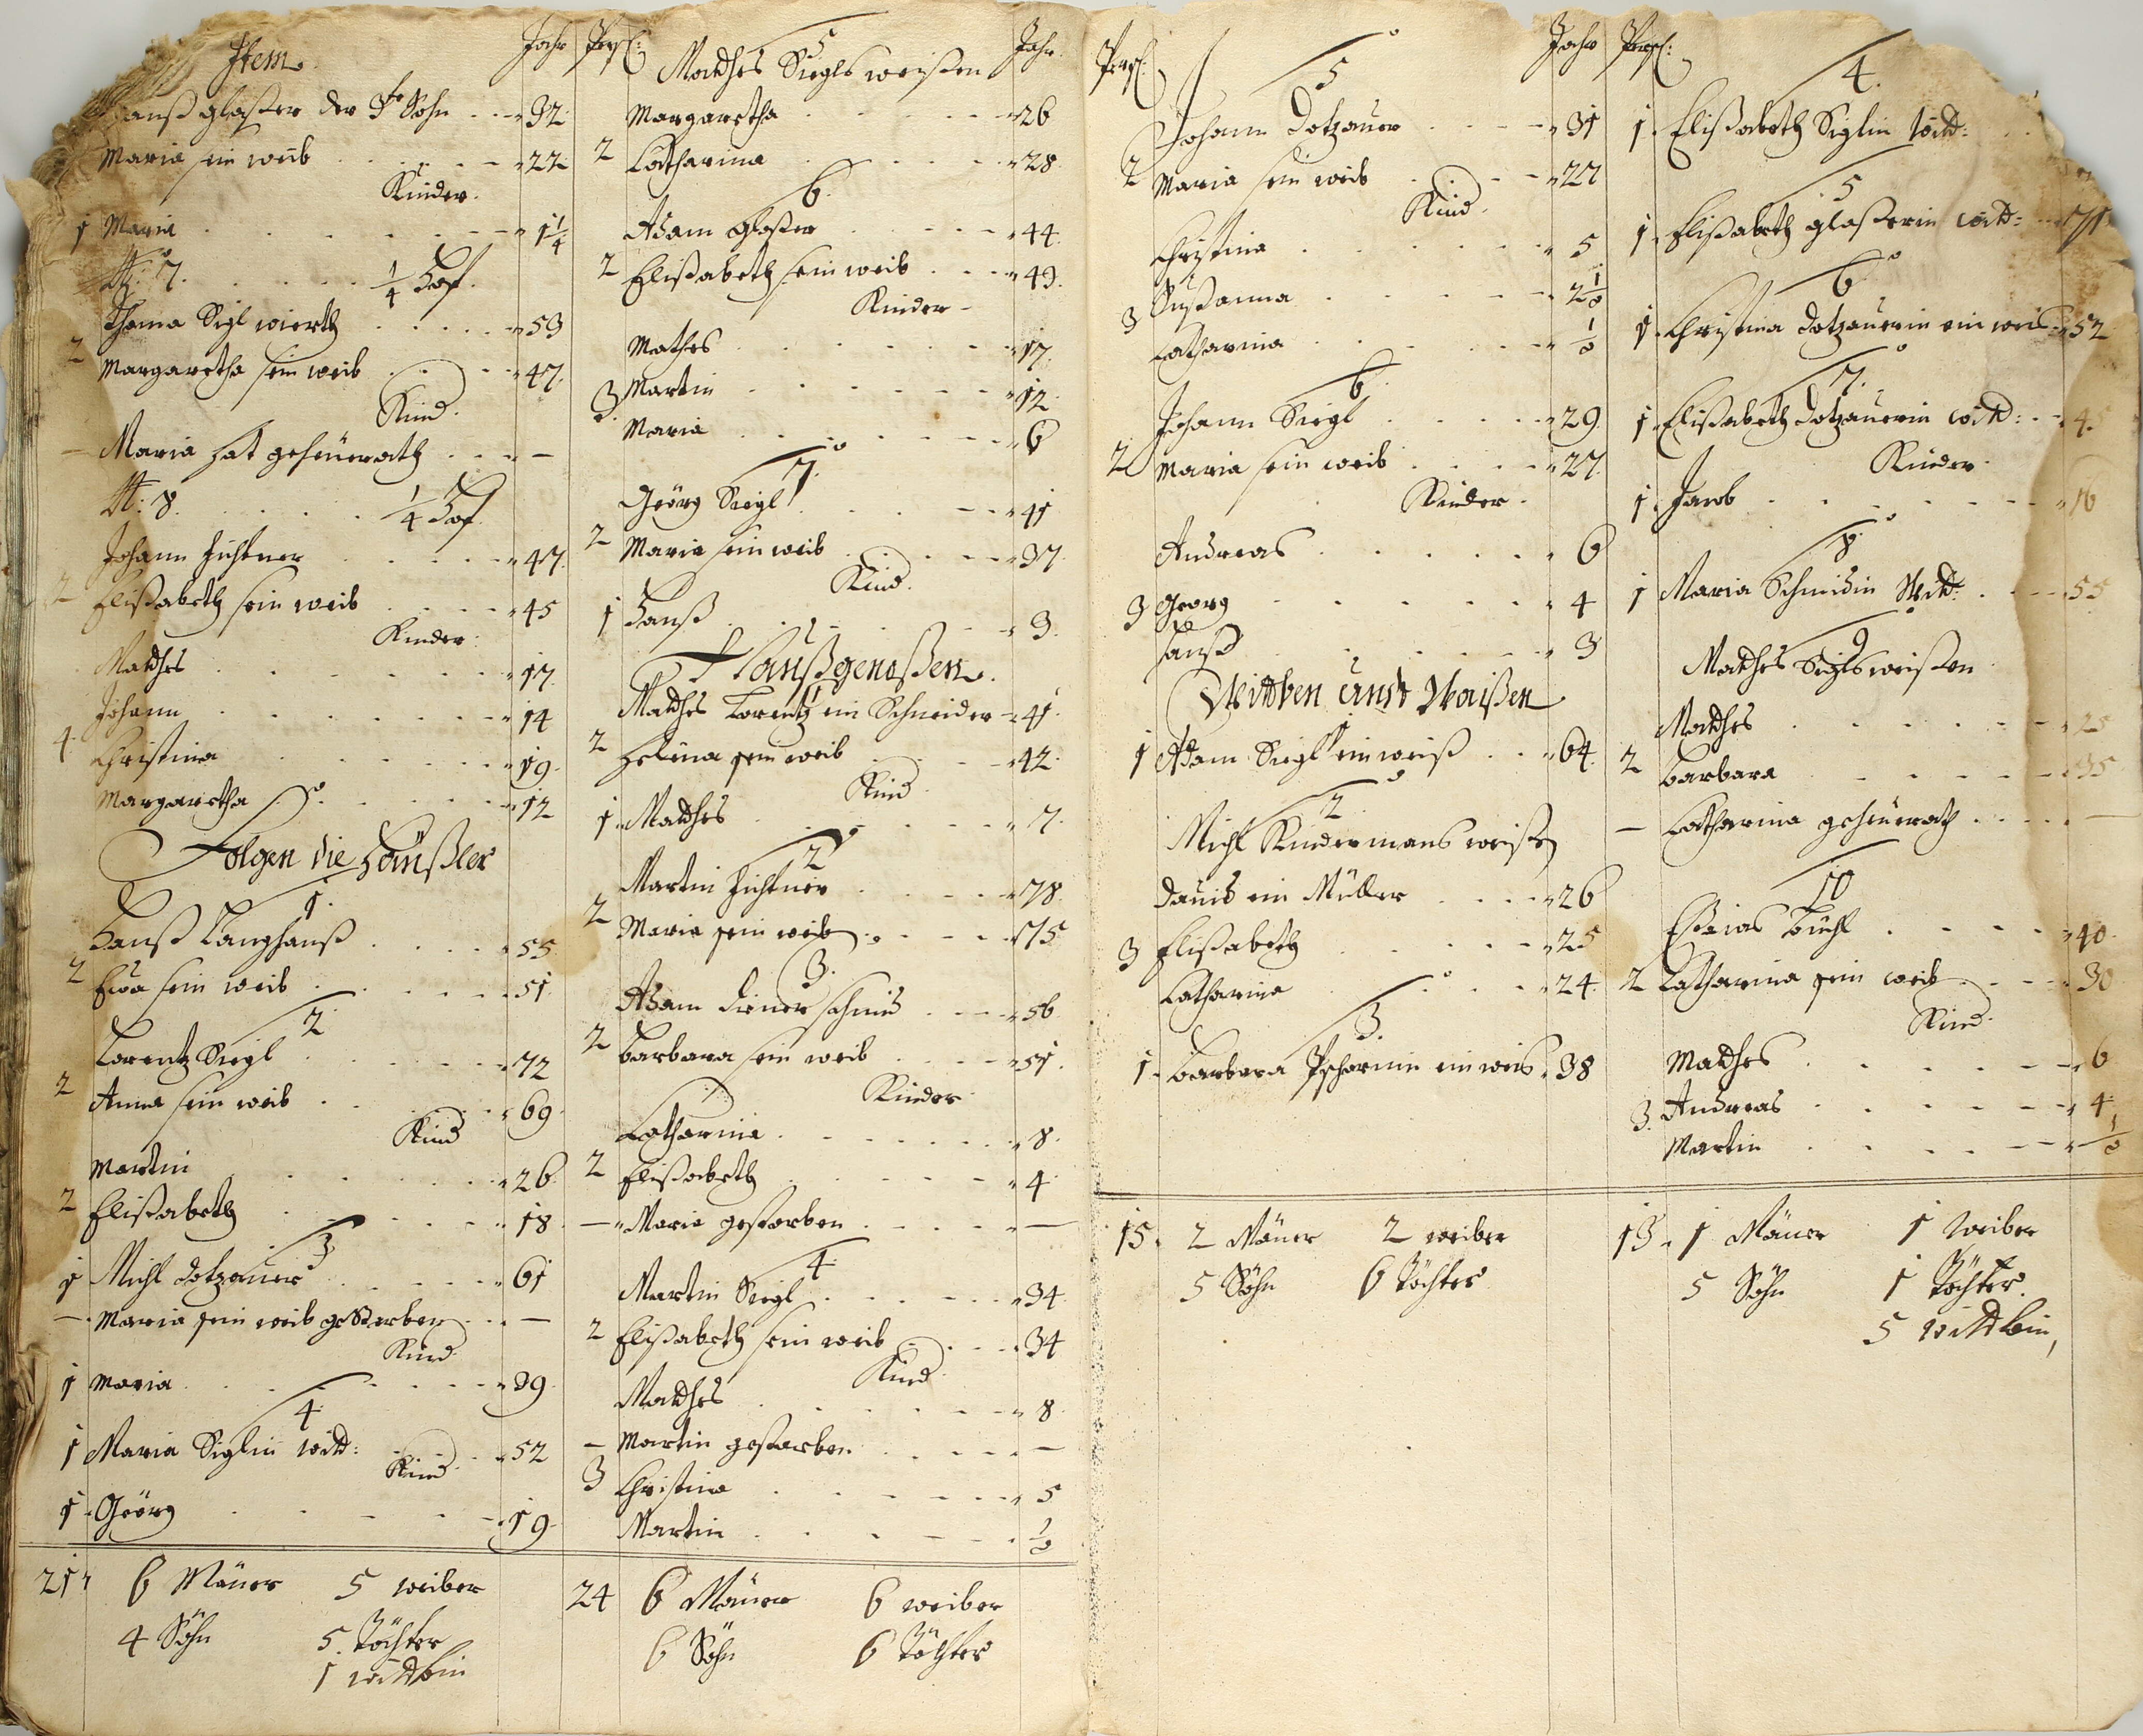 Item. Jahr
Hanß glaßer der Jr Sohn 32
Maria sein weib 22
Kinder.
1 Maria 1 1/4
N: 7. 1/4 Hof.
Thoma Sigl wierth 53
2 Margaretha sein weib 47.
Kind.
— Maria hat geheürath —
N: 8. 1/4 Hof.
Johann Zichtner 47.
2 Elißabeth sein weib 45
Kinder.
Mathes 17.
Johann 14
4 Christina 19.
Margaretha 12
Folgen die Häußler
1.
Hanß Langhanß 55
2 Eva sein weib 51.
2
Lorentz Siegl 72
2 Anna sein weib 69
Kind
Martin 26.
2 Elißabeth 18
3
1 Michl Dotzauer 61
— Maria sein weib gestorben —
Kind
1 Maria 39
4
1 Maria Siglin witb: 52
Kind
1 Geörg 19
21 6 Mäner 5 weiber
4 Söhn 5. Töchter
1 wittbin
Pers: 5 Jahr.
Mathes Siegls weißen
Margaretha 26
2 Catharina 28
6.
Adam Glaßer 44
2 Elißabeth sein weib 49.
Kinder
Mathes 17.
3 Martin 12
Maria 6
7.
Geörg Siegl 41
2 Maria sein weib 37.
Kind.
1 Hanß 3.
Haußgenoßen.
1
Mathes Lorentz ein Schneider 41
2 Helena sein weib 42.
Kind
1 Mathes 7.
2
Martin Zichtner 78.
2 Maria sein weib 75
3.
Adam Diener schmid 56
2 Barbara sein weib 51.
Kinder
Catharina 8.
2 Elißabeth 4
— Maria gestorben —
4.
Martin Siegl 34
2 Elißabeth sein weib 34
Kind
Mathes 8
— Martin gestorben —
3 Christina 5
Martin
24 6 Mäner 6 weiber
6 Söhn 6 Töchter
Pers: 5 Jahr
Johann Dotzauer 31
2 Maria sein weib 27
Kind.
Christina 5
3 Sußanna
Catharina
6.
Johann Siegl 29.
2 Maria sein weib 27.
Kinder
Andreas 6
3 Georg 4
Hanß 3
Wittben und Waißen
1
1 Adam Siegl ein weiß 64.
2
Michl Kindermans weißen
David ein Müller 26
3 Elißabeth 25
Catharina 24.
3.
1. Barbara ein weis 38
15. 2 Mäner 2 weiber
5 Söhn 6 Töchter
Pers:
4.
1. Elißabeth Siglin witb:
5
1. Elißabeth glaßerin witb: 71
6
1. Christina Dotzauerin ein weis 52
7.
1. Elißabeth Dotzauerin witb: 4
Kinder
1. Jacob 16
8.
1 Maria Schmidin Witb: 55
9
Mathes Sigls weißen
Mathes 25
2 Barbara 35
— Catharina geheürath —
10
Eßaias 40.
2 Catharina sein weib 30
Kind.
Mathes 6
3. Andreas 4
Martin
13. 1 Mäner 1 weiber
5 Söhn 1 Töchter.
5 wittbin,